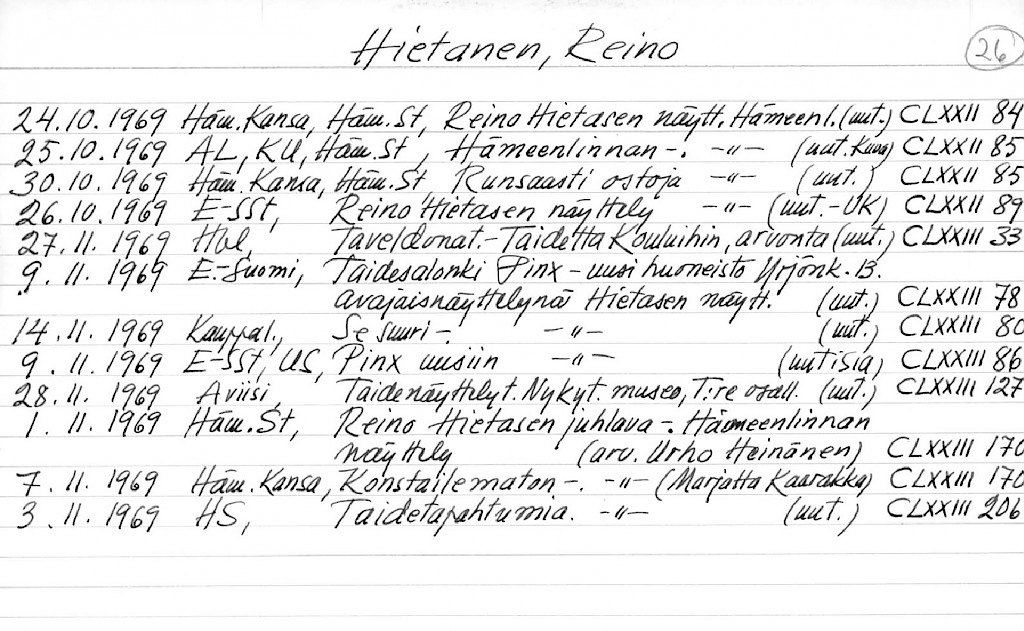 Hietanen, Reino 26
24.10.1969 Häm.Kansa, Häm.St, Reino Hietasen näytt. Hämeenl.(uut.) CLXXII 84
25.10.1969 AL, KU, Häm.St, Hämeenlinnan -. -"- (uut. Kuva) CLXXII 85
30.10.1969 Häm.Kansa, Häm.St, Runsaasti ostoja -"- (uut.) CLXXII 85
26.10.1969 E-SSt, Reino Hietasen näyttely -"- (uut.-UK) CLXXII 89
27.11.1969 Hbl, Taveldonat.- Taidetta Kouluihin, arvonta (uut.) CLXXIII 33
9.11.1969 E.-Suomi, Taidesalonki Pinx - uusi huoneisto Yrjönk. 13.
avajaisnäyttelynä Hietasen näytt. (uut.) CLXXIII 78
14.11.1969 Kauppal., Se suuri -. -"- (uut.) CLXXIII 80
9.11.1969 E-SSt, US, Pinx uusiin -"- (uutisia) CLXXIII 86
28.11.1969 Aviisi, Taidenäyttelyt. Nykyt. museo, T:re osall. (uut.) CLXXIII 127
1.11.1969 Häm.St, Reino Hietasen juhlava -. Hämeenlinnan
näyttely (arv. Urho Heinänen) CLXXIII 170
7.11.1969 Häm.Kansa, Konstailematon -. -"- (Marjatta Kaarakka) CLXXIII 170
3.11.1969 HS, Taidetapahtumia. -"- (uut.) CLXXIII 206